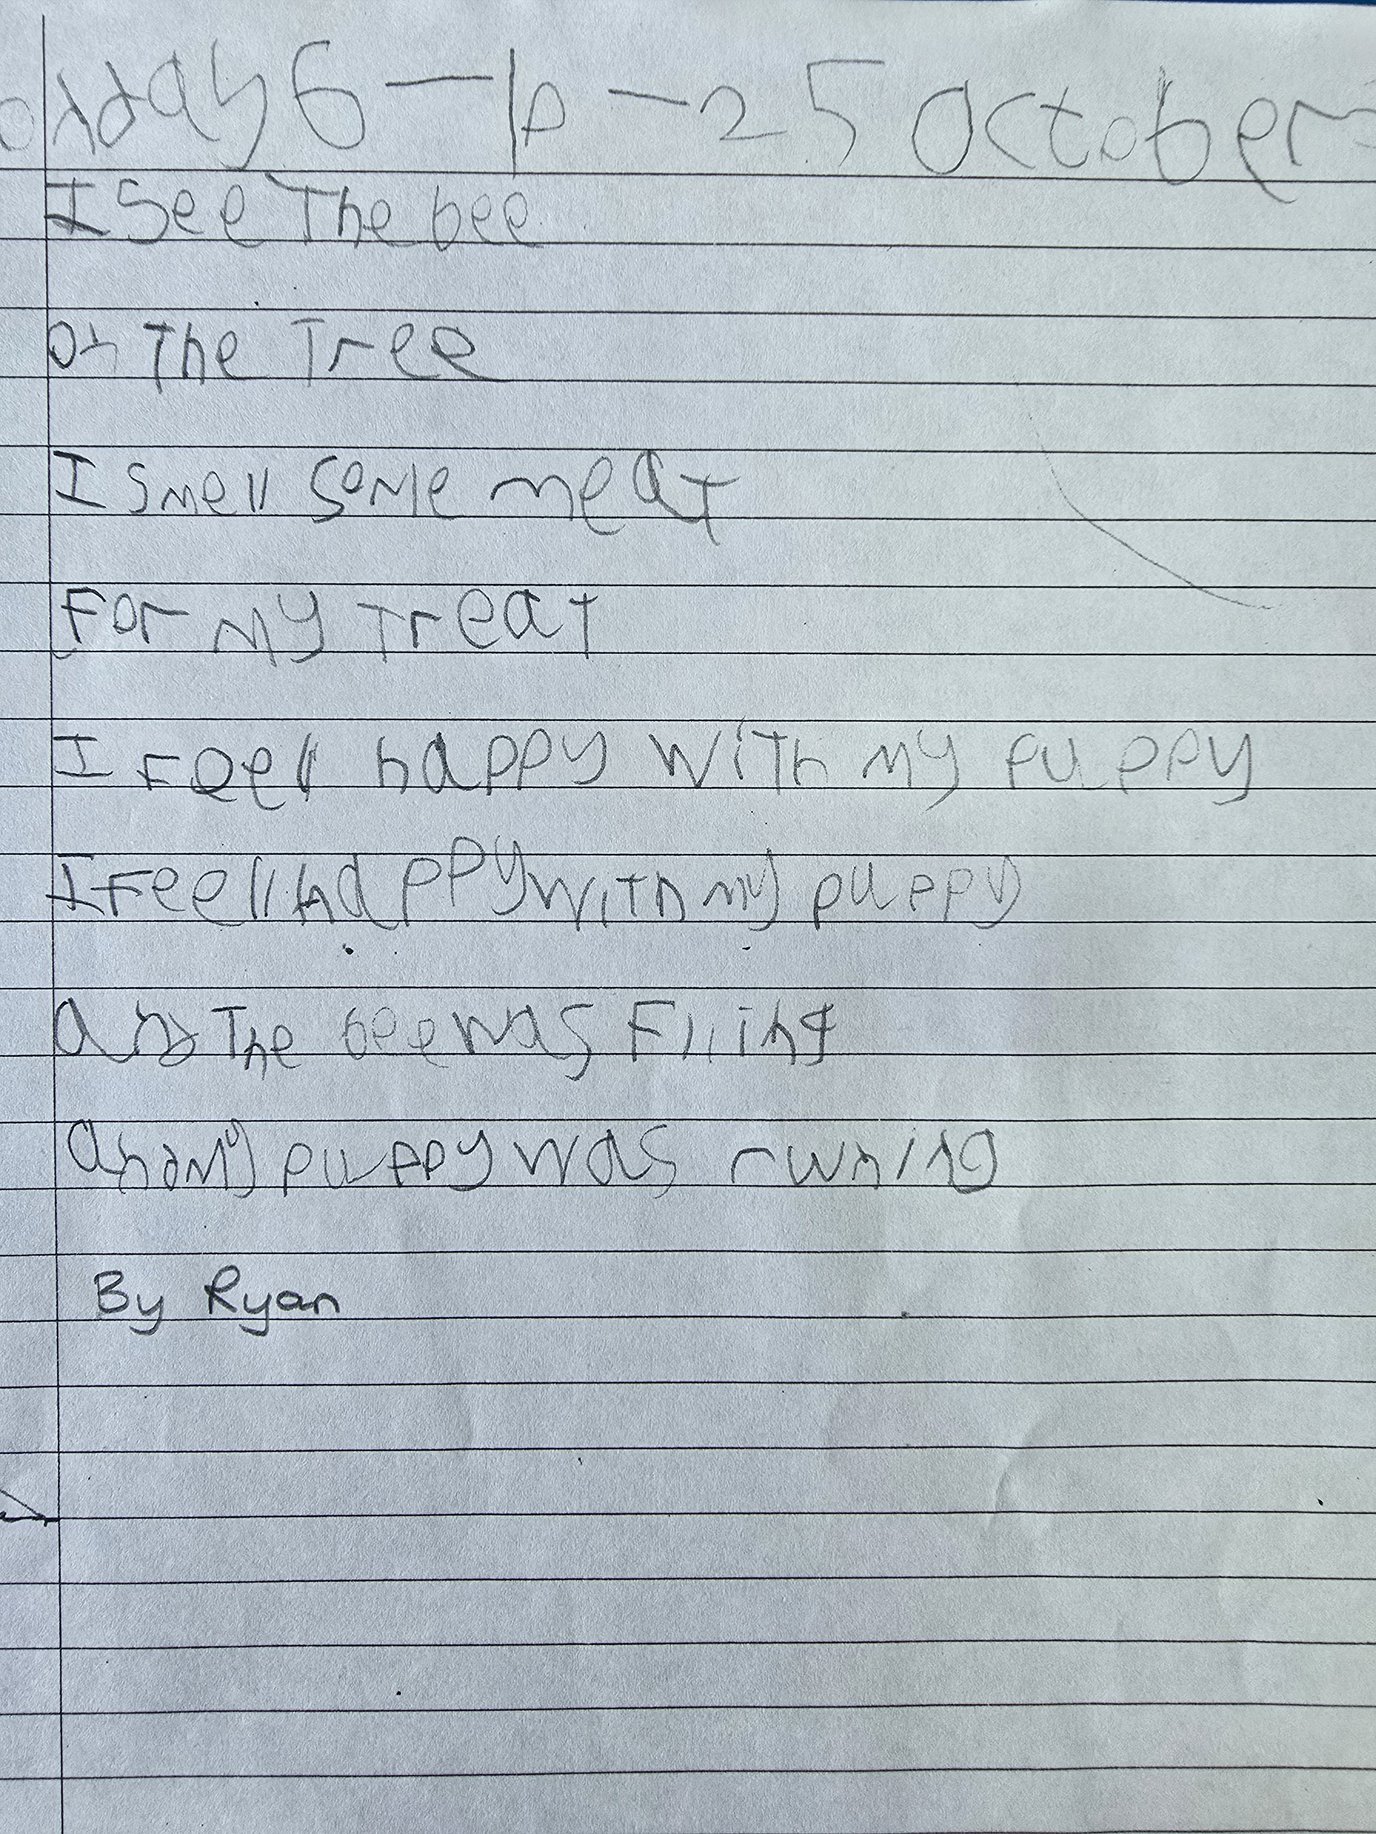 onday 6 - 10 - 25 October
I see The bee
on The Tree
I smell some meat
For my Treat
I Feell happy with my puppy
I Feell happy with my puppy
and The bee was Fliing
and my puppy was runing
By Ryan